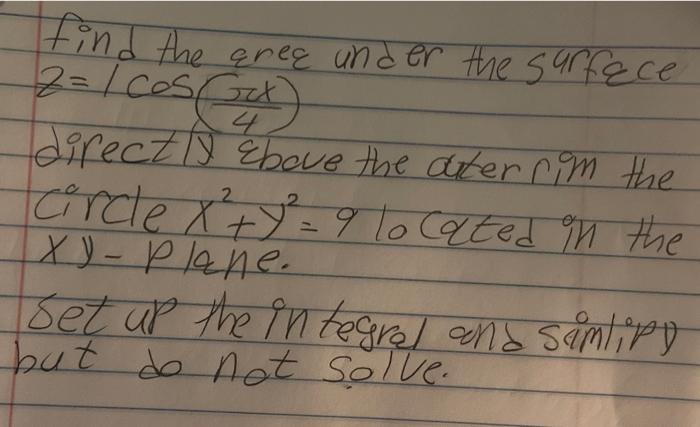 find the area under the surface
z = 1 cos(πx/4)
directly above the outer rim the
circle x²+y²=9 located in the
xy-plane.
set up the integral and simlipy
but do not solve.